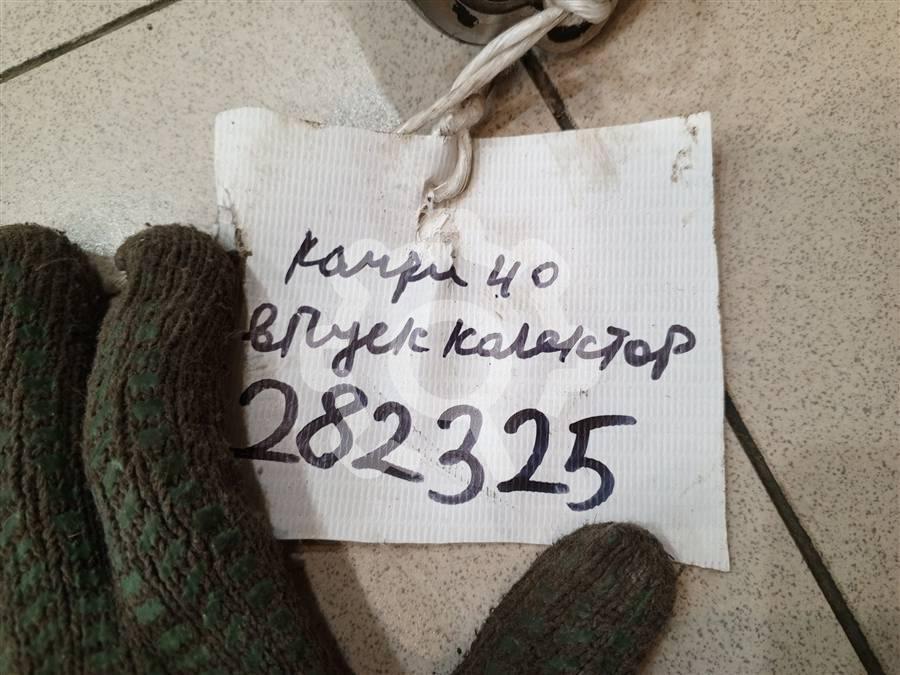 Камри 40
впуск калектор
282325